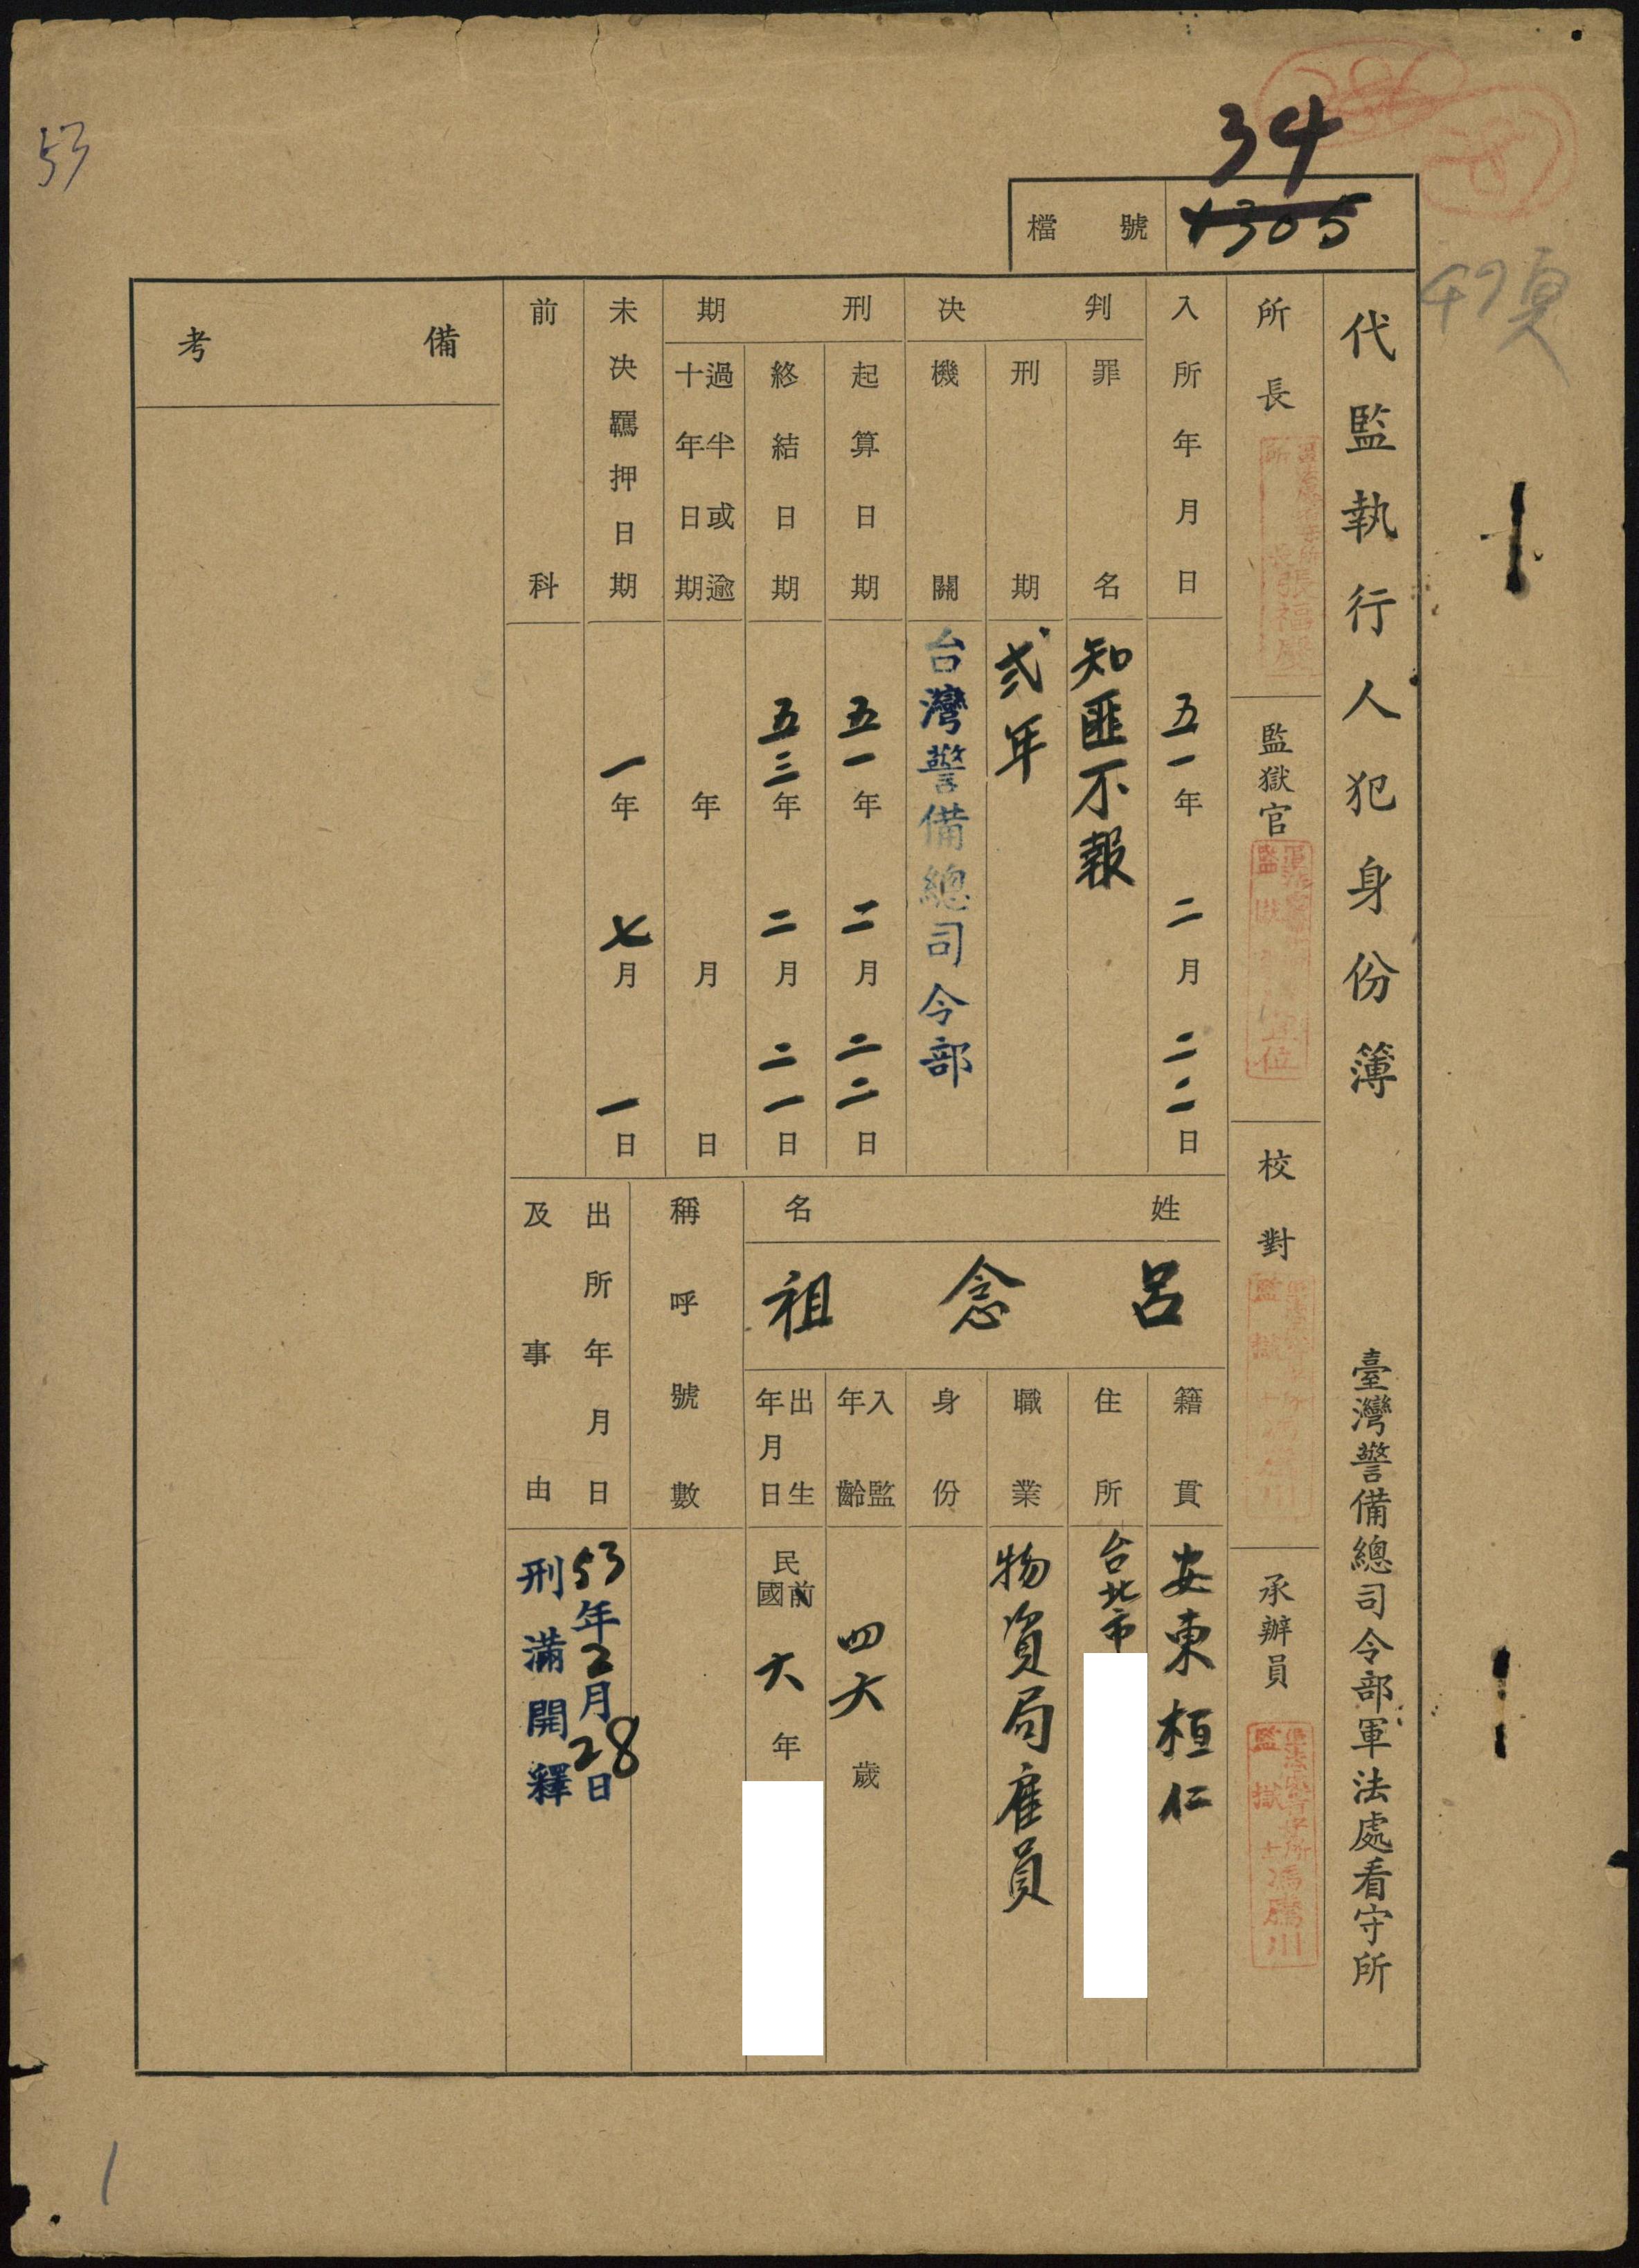 53
34
檔號
1305
49頁
代監執行人犯身份簿
臺灣警備總司令部軍法處看守所
所長
張福慶
監獄官
校對
承辦員
監獄
馮騰川
入所年月日
五一年二月二二日
判決
罪名
知匪不報
刑期
弍年
機關
台灣警備總司令部
刑期
起算日期
五一年二月二二日
終結日期
五三年二月二一日
過半或逾十年日期
年月日
未決羈押日期
一年七月一日
前科
備考
姓名
呂念祖
籍貫
安東桓仁
住所
台北市
職業
物資局雇員
身份
入監年齡
四六歲
出生年月日
民國前
六年
稱呼號數
出所年月日及事由
53年2月28日
刑滿開釋
1